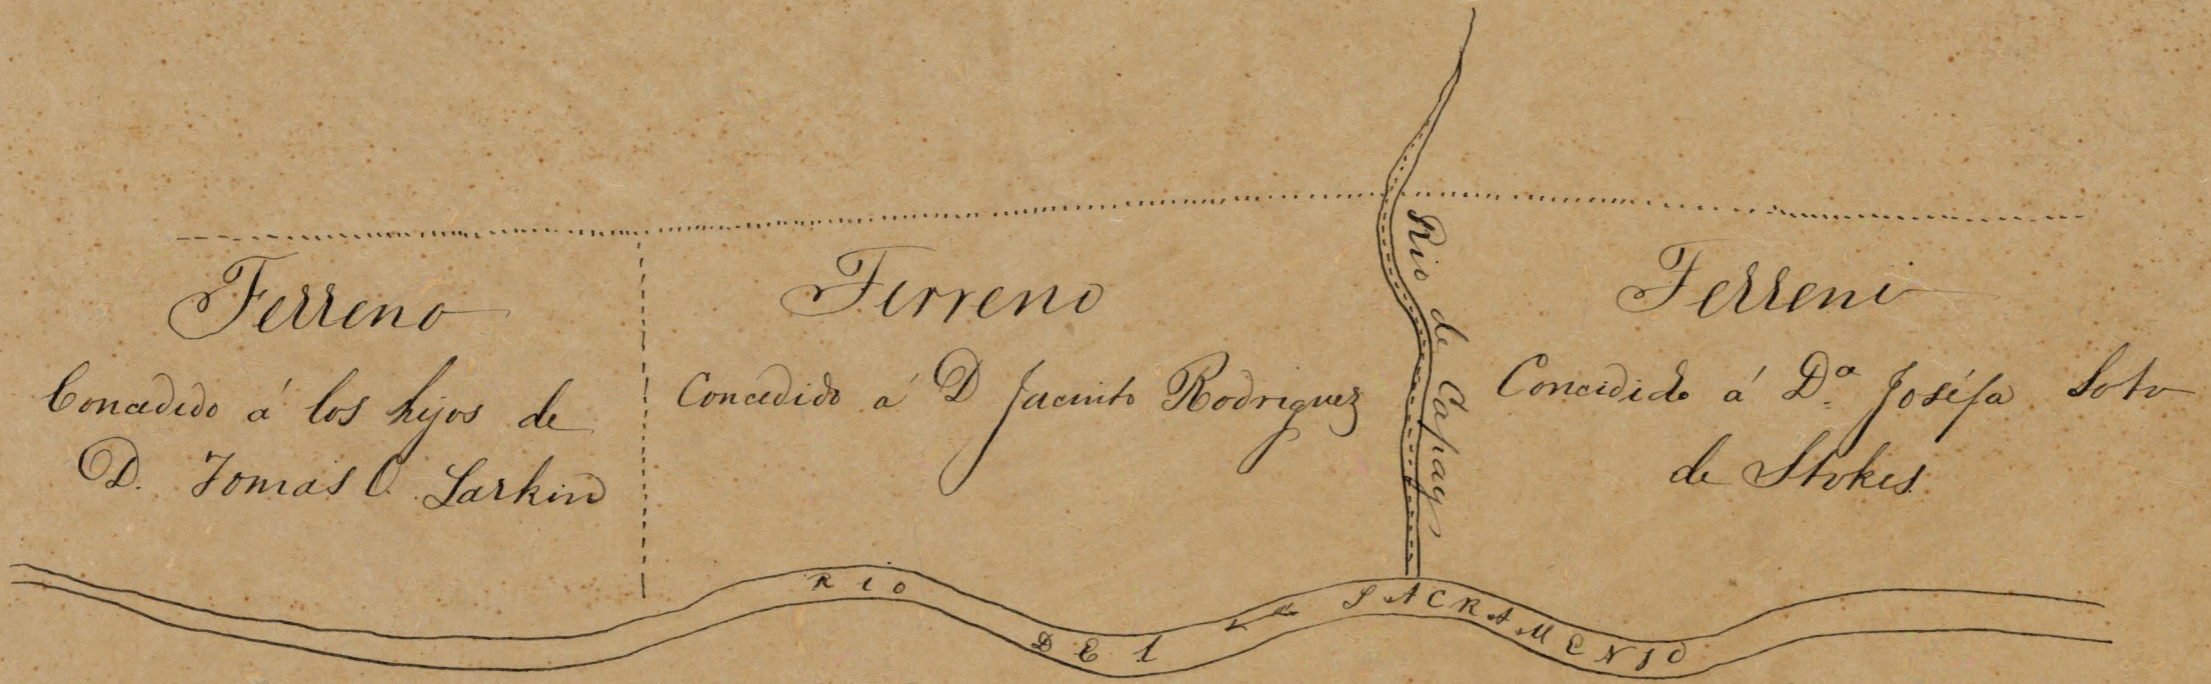 Terreno
Concedido á los hijos de
D. Tomas O. Larkin
Terreno
Concedido á D Jacinto Rodriguez
Rio de Capay
Terreno
Concedido á Dª Joséfa Soto
de Stokes.
RIO DEL SACRAMENTO